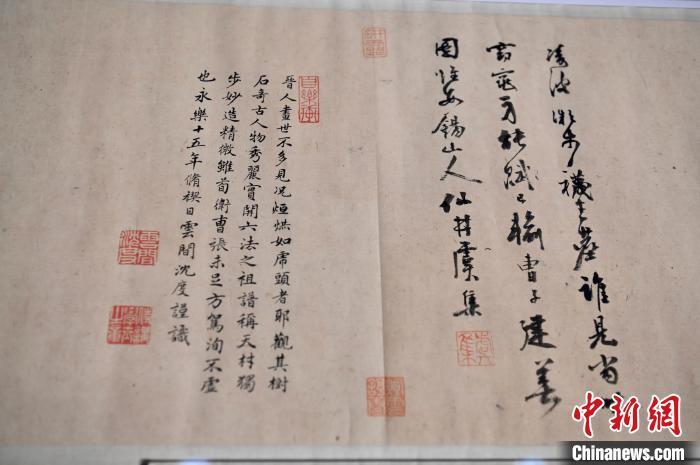 凌波微步襪生塵誰見當時
窈窕身能賦已輸曹子建善
圖惟數錫山人仙井虞集
晉人畫世不多見況烜烘如虎頭者耶觀其樹
石奇古人物秀麗實開六法之祖譜稱天材獨
步妙造精微雖荀衛曹張未足方駕洵不虛
也永樂十五年脩禊日雲間沈度謹識
中新網
Chinanews.com